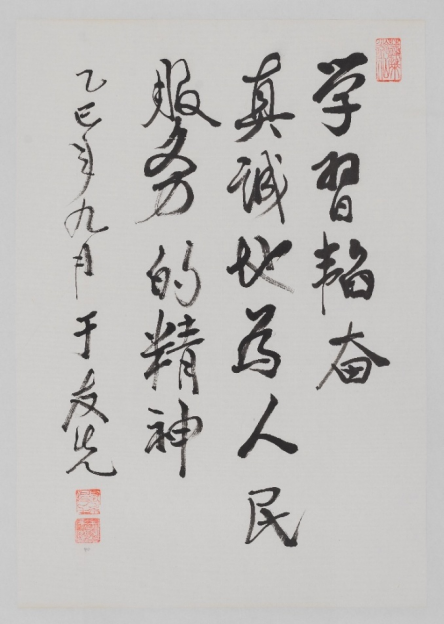 学習韜奋
真诚地为人民
服务的精神
乙巳年九月 于友先